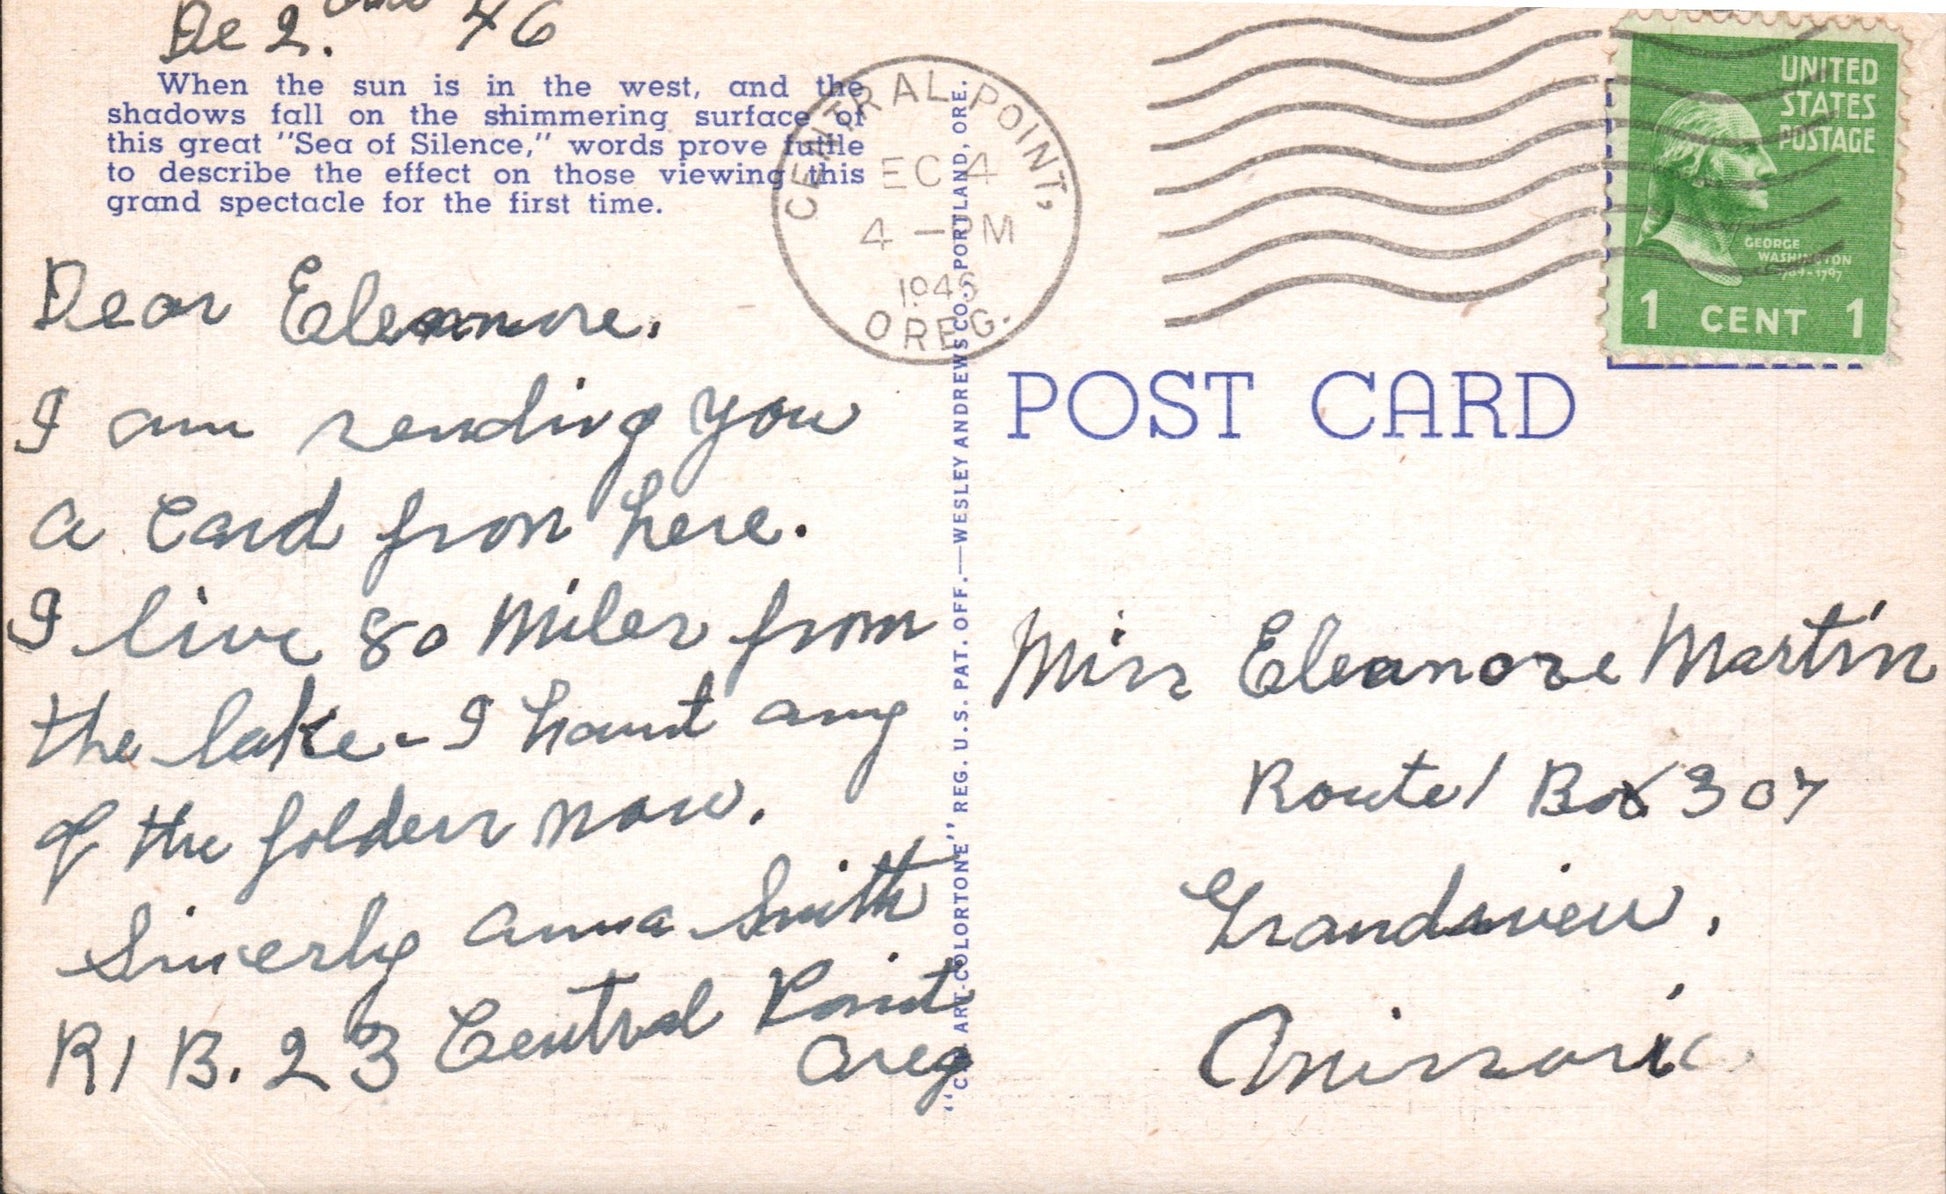 De 2. 46
When the sun is in the west, and the
shadows fall on the shimmering surface of
this great "Sea of Silence," words prove futile
to describe the effect on those viewing this
grand spectacle for the first time.
Dear Eleanore.
I am sending you
a Card from here.
I live 80 Miles from
the lake - I havnt any
of the folders now.
Sincerly Anna Smith
R1 B. 23 Central Point
Oreg
"C.T. ART-COLORTONE" REG. U.S. PAT. OFF.—WESLEY ANDREWS CO., PORTLAND, ORE.
CENTRAL POINT,
EC 4
4 - PM
1946
OREG.
UNITED
STATES
POSTAGE
GEORGE
WASHINGTON
1789-1797
1 CENT 1
POST CARD
Miss Eleanore Martin
Route 1 Box 307
Grandview,
Missouri